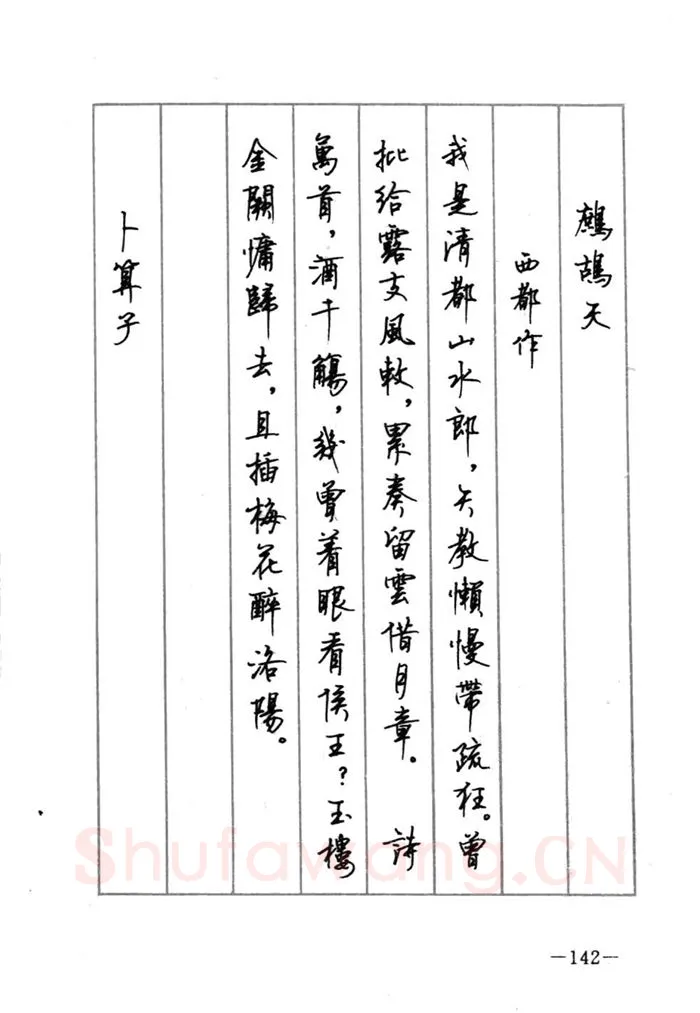 鷓鴣天
西都作
我是清都山水郎，天教懶慢帶疏狂。曾
批給露支風敕，累奏留雲借月章。 詩
萬首，酒千觴，幾曾着眼看侯王？玉樓
金闕慵歸去，且插梅花醉洛陽。
卜算子
Shufawang.CN
—142—